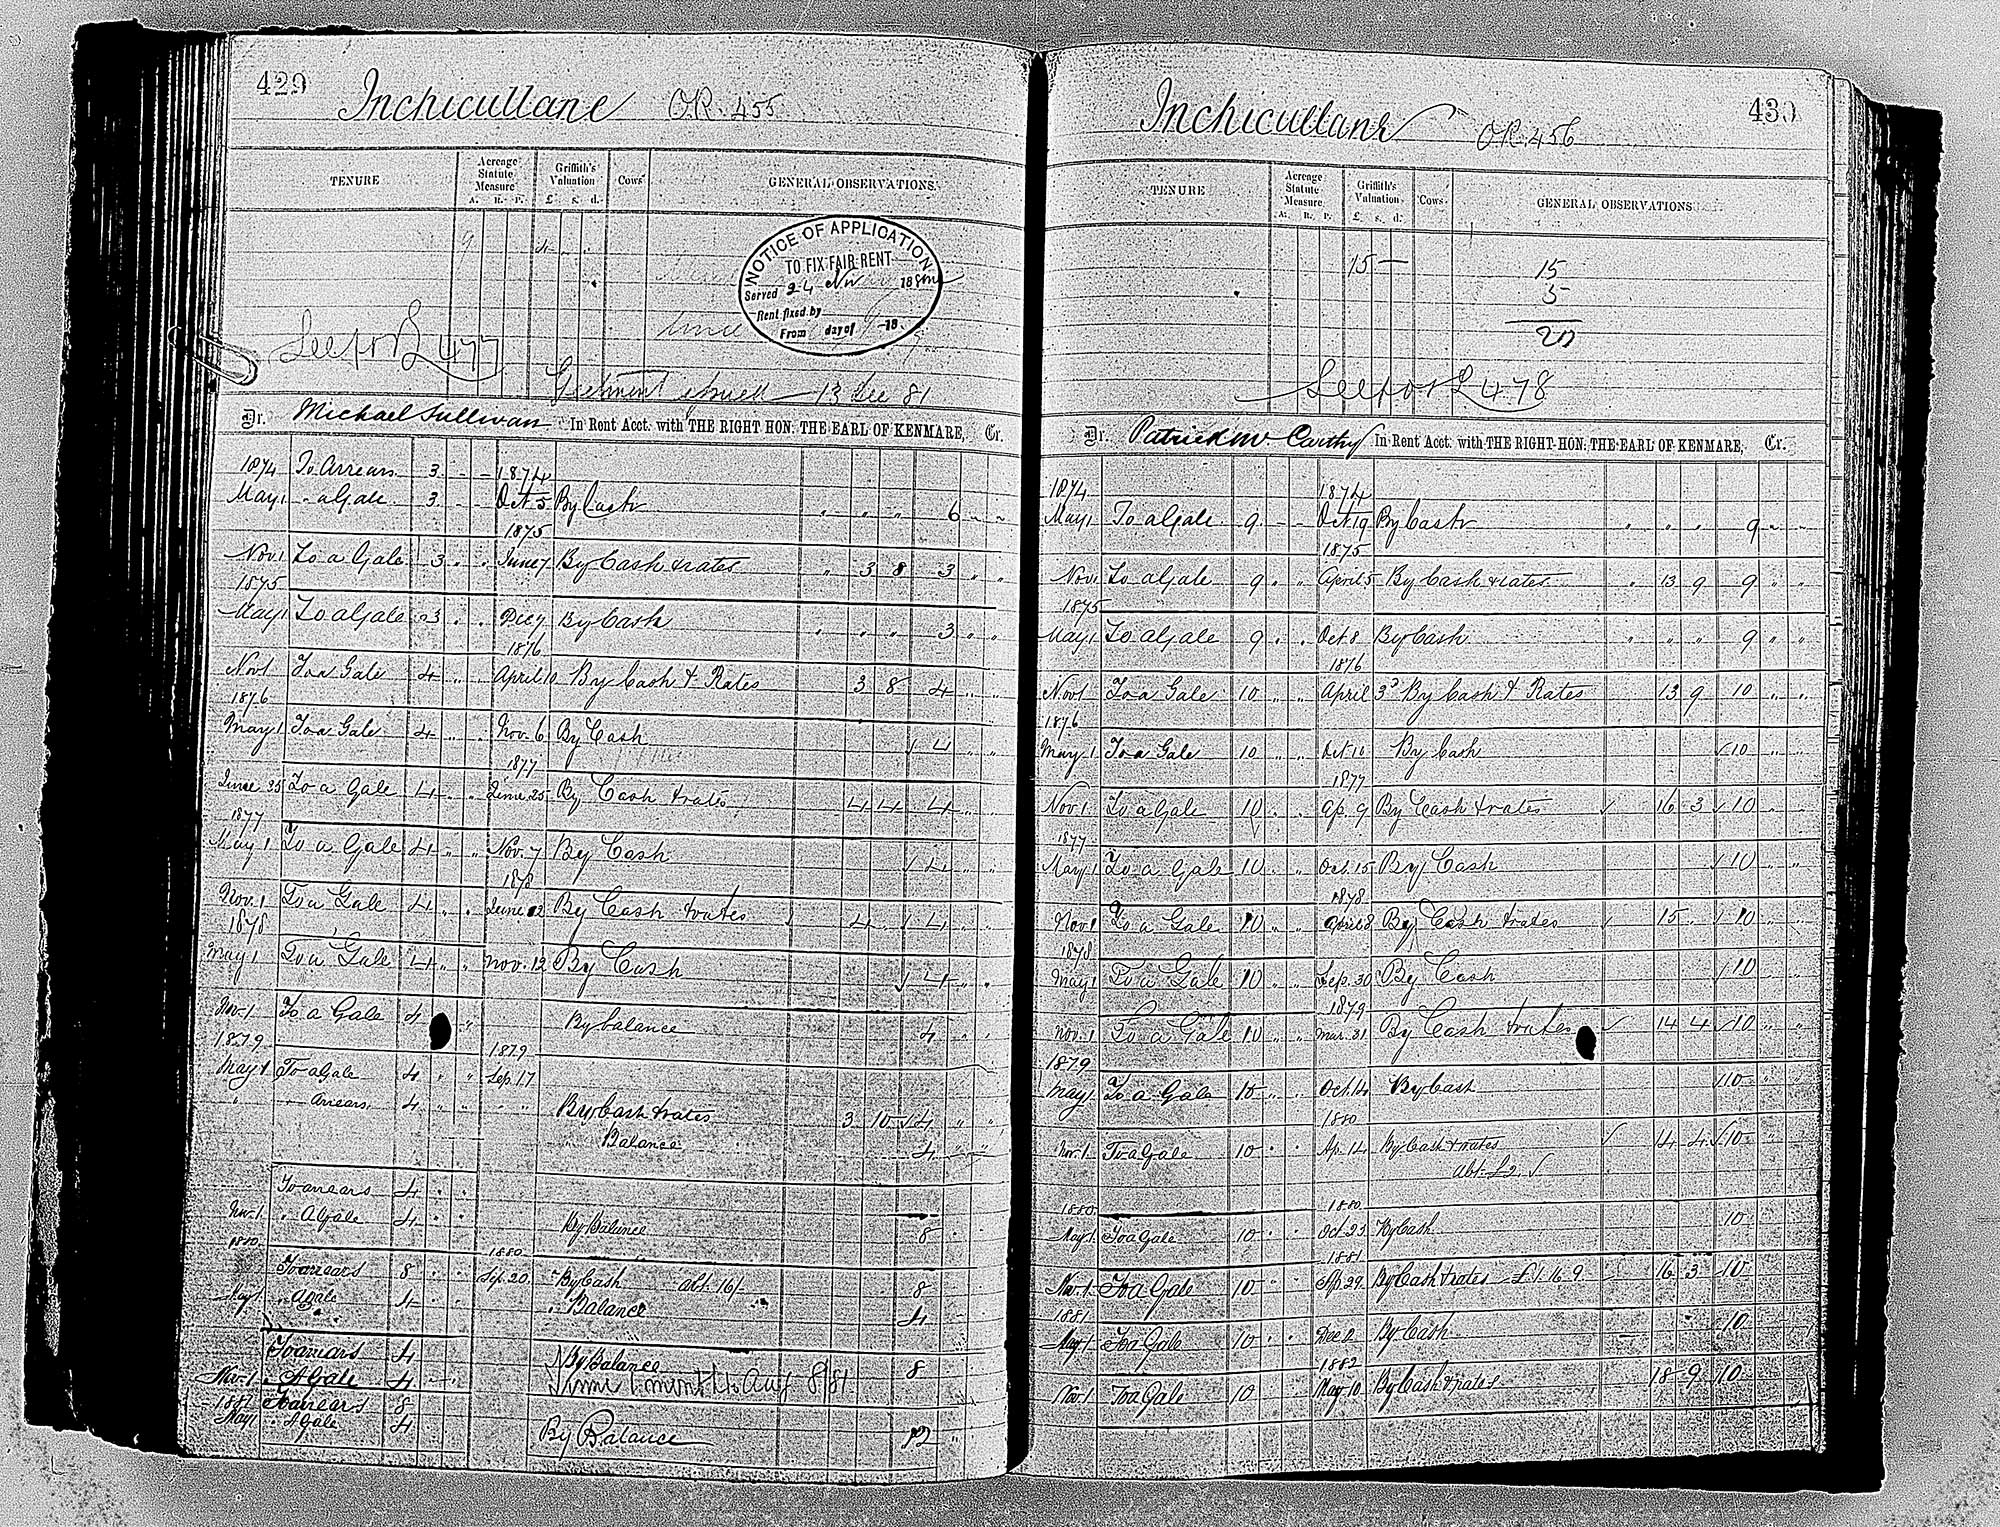 429
Inchicullane O.R. 455
TENURE
Acreage Statute Measure
A. R. P.
Griffith's Valuation
£ s. d.
Cows
GENERAL OBSERVATIONS.
9 4
NOTICE OF APPLICATION
TO FIX FAIR RENT
Served 24 Nov 188
Rent fixed by
From day of 18
See for 477
Ejectment 13 Dec 81
Dr. Michael Sullivan In Rent Acct. with THE RIGHT HON. THE EARL OF KENMARE, Cr.
1874 To Arrears 3 - - 1874
May 1 " a Gale 3 - - Oct 5 By Cash " " " 6 " "
1875
Nov. 1 To a Gale 3 " " June 7 By Cash & rates " 3 8 3 " "
1875
May 1 To a Gale 3 " " Dec 7 By Cash " " " 3 " "
1876
Nov 1 To a Gale 4 " " April 10 By Cash & Rates 3 8 4 " "
1876
May 1 To a Gale 4 " " Nov. 6 By Cash √ 4 " "
1877
June 25 To a Gale 4 " " June 25 By Cash & rates 4 4 4 " "
1877
May 1 To a Gale 4 " " Nov. 7 By Cash √ 4 " "
1878
Nov. 1 To a Gale 4 " " June 12 By Cash & rates 4 " √ 4 " "
1878
May 1 To a Gale 4 " " Nov. 12 By Cash √ 4 " "
Nov. 1 To a Gale 4 " By balance 4 " "
1879 1879
May 1 To a Gale 4 " " Sep. 17
" " Arrears 4 " " " " By Cash & rates 3 10 √ 4 " "
Balance 4 " "
To arrears 4 " "
Nov. 1 " A Gale 4 " " By Balance 8 "
1880 1880
To arrears 8 " " Sep. 20 By Cash abt. 16/ 8
May 1 " A Gale 4 " " " Balance 4 -
To arrears 4 By Balance 8
Nov. 1 " A Gale 4 " Time 1 month to Aug 8/81
1881 To arrears 8
May 1 " A Gale 4 By Balance 12 "
430
Inchicullane O.R. 456
TENURE
Acreage Statute Measure
A. R. P.
Griffith's Valuation
£ s. d.
Cows.
GENERAL OBSERVATIONS
15 —
15
5
20
See for 478
Dr. Patrick Mc Carthy In Rent Acct. with THE RIGHT HON. THE EARL OF KENMARE, Cr.
1874 1874
May 1 To a Gale 9 - - Oct 19 By Cash " " " 9 " "
1875
Nov. 1 To a Gale 9 " " April 5 By Cash & rates " 13 9 9 " "
1875
May 1 To a Gale 9 " " Oct. 8 By Cash " " " 9 " "
1876
Nov 1 To a Gale 10 " " April 3d By Cash & Rates 13 9 10 " "
1876
May 1 To a Gale 10 " " Oct 10 By Cash √ 10 " "
1877
Nov 1. To a Gale 10 " " Ap. 9 By Cash & rates √ 16 3 √ 10 " "
1877
May 1 To a Gale 10 " " Oct. 15 By Cash √ 10 " "
1878
Nov 1 To a Gale 10 " " April 8 By Cash & rates √ 15 " √ 10 " "
1878
May 1 To a Gale 10 " " Sep. 30 By Cash √ 10 " "
1879
Nov. 1 To a Gale 10 " " Mar. 31 By Cash & rates √ 14 4 √ 10 " "
1879
May 1 To a Gale 10 " " Oct. 14 By Cash √ 10 "
1880
Nov. 1 To a Gale 10 " " Ap. 14 By Cash & rates √ 14 4 √ 10 "
abt. £2 √
1880. 1880
May 1 To a Gale 10 " " Oct 23 By Cash 10 "
1881
Nov. 1 To a Gale 10 " " Ap. 29 By Cash & rates £1.16.9 16 3 10
1881
May 1 To a Gale 10 " " Dec 2 By Cash 10
1882
Nov. 1 To a Gale 10 May 10 By Cash & rates 18 9 10